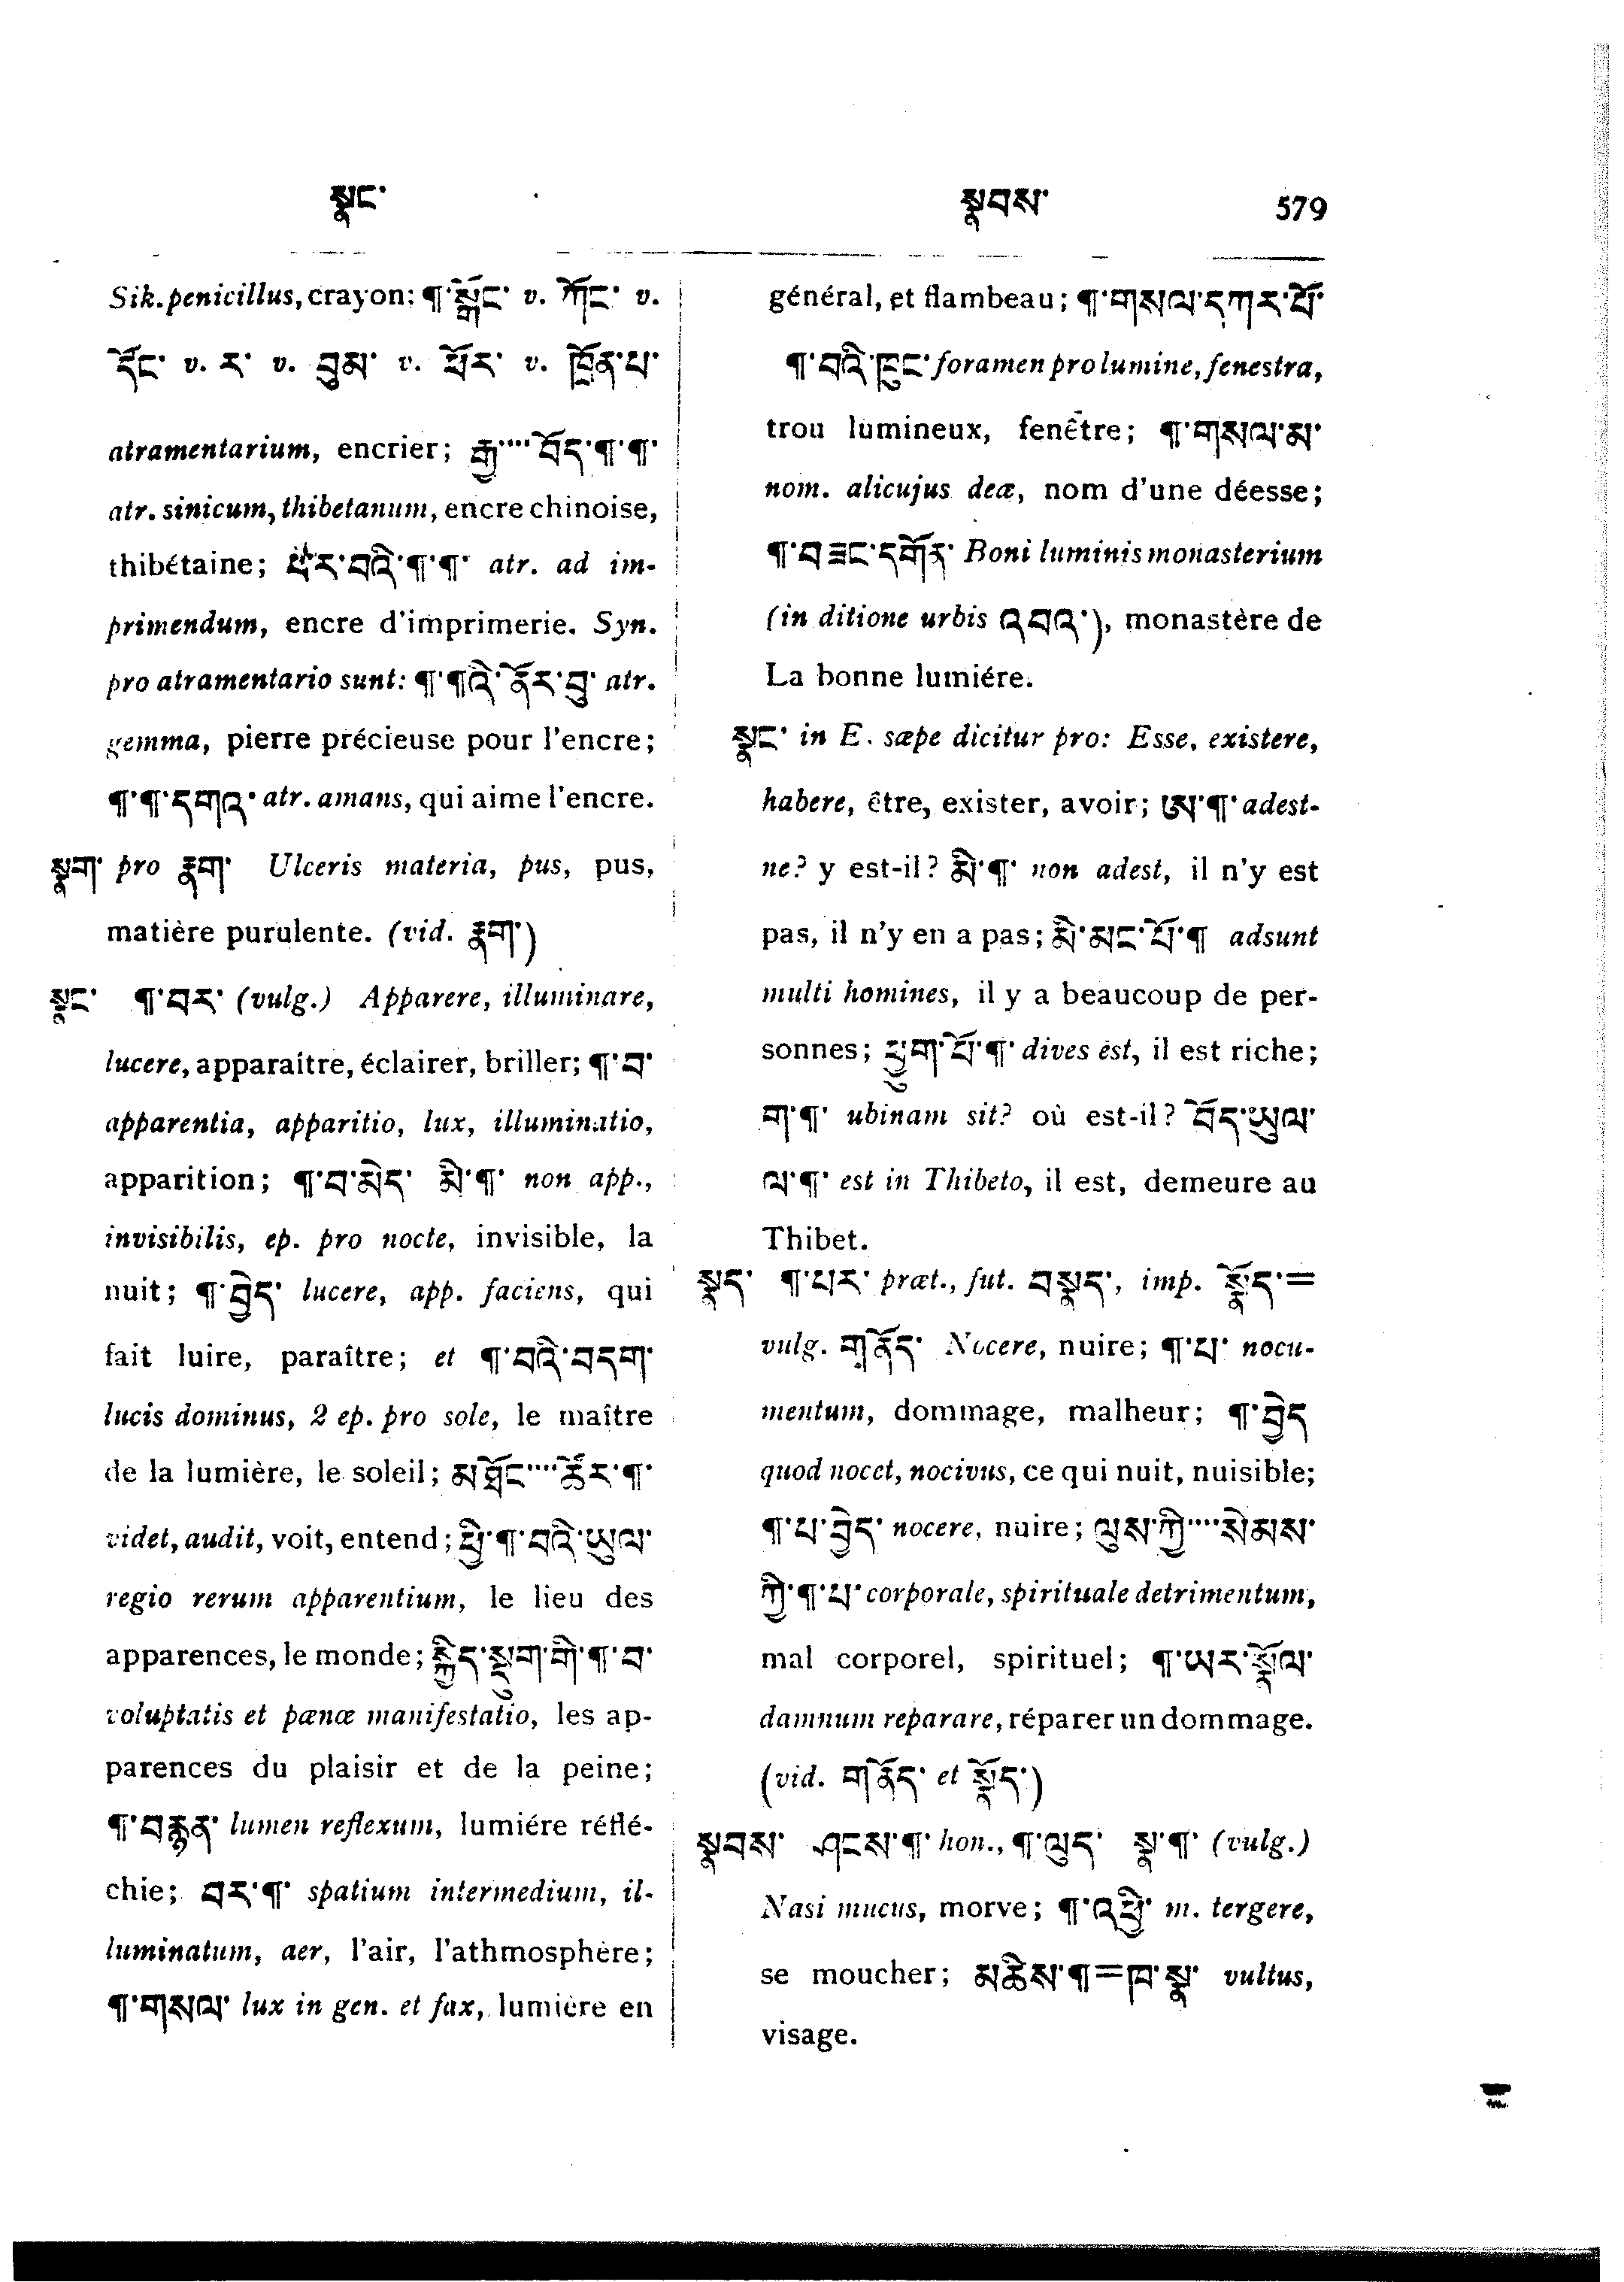 སྣང་ སྣབས་ 579
Sik. penicillus, crayon; ¶་སྒོང་ v. ཀོང་ v.
དོང་ v. ར་ v. བུམ་ v. ཕོར་ v. ཁྲོན་པ་
atramentarium, encrier; རྒྱ་····བོད་¶་¶་
atr. sinicum, thibetanum, encre chinoise,
thibétaine; པར་བའི་¶་¶་ atr. ad im-
primendum, encre d'imprimerie. Syn.
pro atramentario sunt: ¶་¶འི་ནོར་བུ་ atr.
gemma, pierre précieuse pour l'encre;
¶་¶་དགའ་ atr. amans, qui aime l'encre.
སྣག་ pro རྣག་ Ulceris materia, pus, pus,
matière purulente. (vid. རྣག་)
སྣང་ ¶་བར་ (vulg.) Apparere, illuminare,
lucere, apparaître, éclairer, briller; ¶་བ་
apparentia, apparitio, lux, illuminatio,
apparition; ¶་བ་མེད་ མི་¶་ non app.,
invisibilis, ep. pro nocte, invisible, la
nuit; ¶་བྱེད་ lucere, app. faciens, qui
fait luire, paraître; et ¶་བའི་བདག་
lucis dominus, 2 ep. pro sole, le maître
de la lumière, le soleil; མཐོང་····ཚོར་¶་
videt, audit, voit, entend; ཕྱི་¶་བའི་ཡུལ་
regio rerum apparentium, le lieu des
apparences, le monde; སྐྱིད་སྡུག་གི་¶་བ་
voluptatis et pænæ manifestatio, les ap-
parences du plaisir et de la peine;
¶་བརྙན་ lumen reflexum, lumiére réflé-
chie; བར་¶་ spatium intermedium, il-
luminatum, aer, l'air, l'athmosphère;
¶་གསལ་ lux in gen. et fax, lumière en
général, et flambeau; ¶་གསལ་དཀར་པོ་
¶་བའི་ཁུང་ foramen pro lumine, fenestra,
trou lumineux, fenêtre; ¶་གསལ་མ་
nom. alicujus deæ, nom d'une déesse;
¶་བཟང་དགོན་ Boni luminis monasterium
(in ditione urbis འབའ་), monastère de
La bonne lumiére.
སྣང་ in E. sæpe dicitur pro: Esse, existere,
habere, être, exister, avoir; ཨ་¶་ adest-
ne? y est-il? མི་¶་ non adest, il n'y est
pas, il n'y en a pas; མི་མང་པོ་¶ adsunt
multi homines, il y a beaucoup de per-
sonnes; ཕྱུག་པོ་¶་ dives est, il est riche;
ག་¶་ ubinam sit? où est-il? བོད་ཡུལ་
ལ་¶་ est in Thibeto, il est, demeure au
Thibet.
སྣད་ ¶་པར་ præt., fut. བསྣད་, imp. སྣོད་=
vulg. གནོད་ Nocere, nuire; ¶་པ་ nocu-
mentum, dommage, malheur; ¶་བྱེད
quod nocet, nocivus, ce qui nuit, nuisible;
¶་པ་བྱེད་ nocere, nuire; ལུས་ཀྱི་····སེམས་
ཀྱི་¶་པ་ corporale, spirituale detrimentum,
mal corporel, spirituel; ¶་ཡར་སྣོལ་
damnum reparare, réparer un dommage.
(vid. གནོད་ et སྣོད་)
སྣབས་ ཤངས་¶་ hon., ¶་ལུད་ སྣ་¶་ (vulg.)
Nasi mucus, morve; ¶་འཕྱི་ m. tergere,
se moucher; མཆིས་¶=ཁ་སྣ་ vultus,
visage.